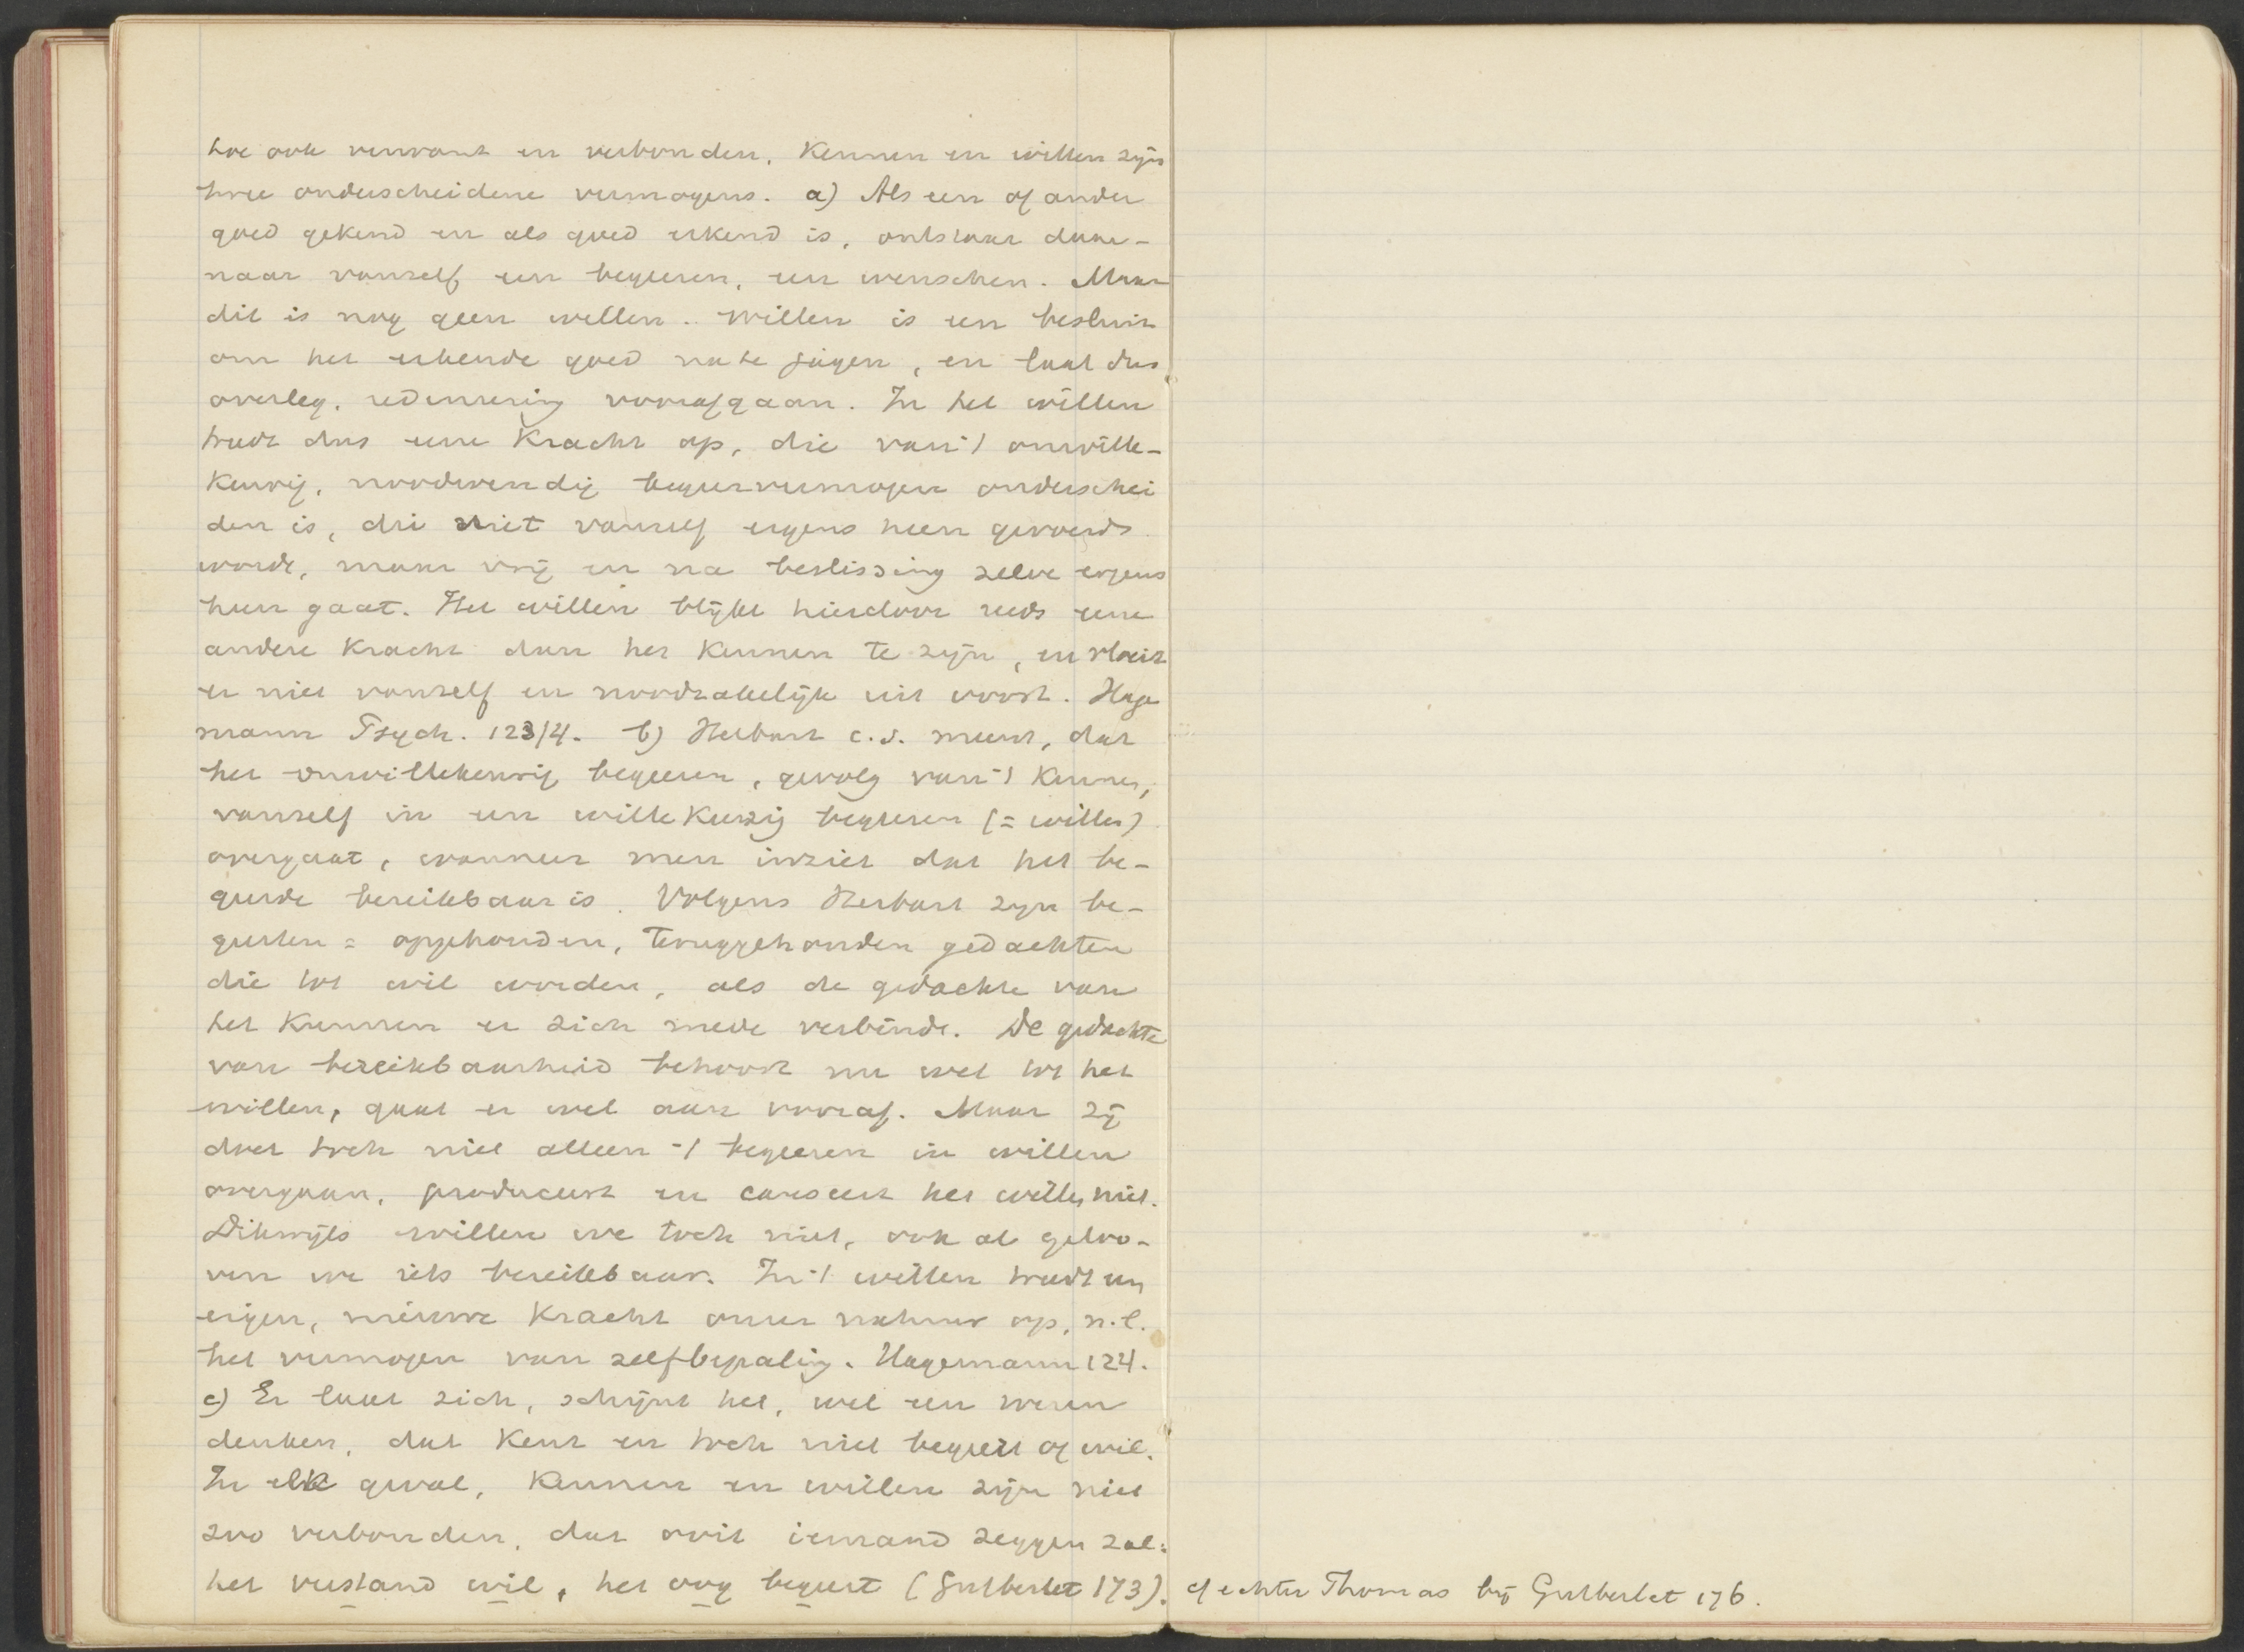 hoe ook verwant en verbonden, Kennen en willen zijn
twee onderscheidene vermogens. a) Als een of ander
goed gekend en als goed erkend is, ontstaat daar-
naar vanself een begeeren, een wenschen. Maar
dit is nog geen willen. Willen is een besluit
om het erkende goed na te jagen, en laat dus
overleg, redeneering voorafgaan. In het willen
treedt dus eene Kracht op, die van 't onwille-
keurig, noodwendig begeervermogen onderschei
den is, die niet vanself ergens heen gevoerd
wordt, maar vrij en na beslissing zelve ergens
heen gaat. Het willen blijkt hierdoor reeds eene
andere Kracht dan het Kennen te zijn, en vloeit
er niet vanself en noodzakelijk uit voort. Hage
mann Psych. 123/4. b) Herbart c.s. meent, dat
het onwillekeurig begeeren, gevolg van 't Kennen,
vanself in een willekeurig begeeren (= willen)
overgaat, wanneer men inziet dat het be-
geerde bereikbaar is. Volgens Herbart zijn be-
geerten = opgehouden, teruggehouden gedachten
die tot wil worden, als de gedachte van
het Kunnen er zich mede verbindt. De gedachte
van bereikbaarheid behoort nu wel tot het
willen, gaat er wel aan vooraf. Maar zij
doet toch niet alleen 't begeeren in willen
overgaan, produceert en causeert het willen niet.
Dikwijls willen we toch niet, ook al geloo-
ven we iets bereikbaar. In 't willen treedt een
eigen, nieuwe Kracht onzer natuur op, n.l.
het vermogen van zelfbepaling. Hagemann 124.
c) Er laat zich, schijnt het, wel een wezen
denken, dat Kent en toch niet begeert of wil.
In elk geval, Kennen en willen zijn niet
zoo verbonden, dat ooit iemand zeggen zal:
het verstand wil, het oog begeert (Gutberlet 173).
cf echter Thomas bij Gutberlet 176.